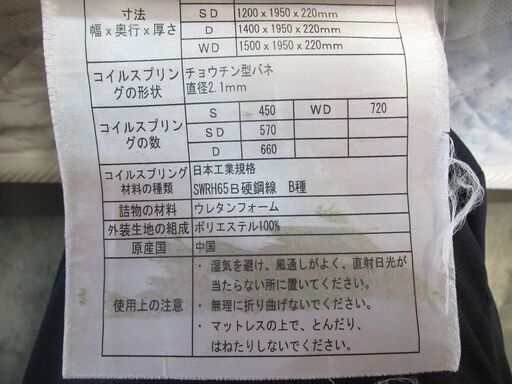 寸法
幅x奥行x厚さ
SD 1200x1950x220mm
D 1400x1950x220mm
WD 1500x1950x220mm
コイルスプリングの形状
チョウチン型バネ
直径2.1mm
コイルスプリングの数
S 450 WD 720
SD 570
D 660
コイルスプリング
材料の種類
日本工業規格
SWRH65B硬鋼線 B種
詰物の材料 ウレタンフォーム
外装生地の組成 ポリエステル100%
原産国 中国
使用上の注意
・湿気を避け、風通しがよく、直射日光が
当たらない所に置いてください。
・無理に折り曲げないでください。
・マットレスの上で、とんだり、
はねたりしないでください。